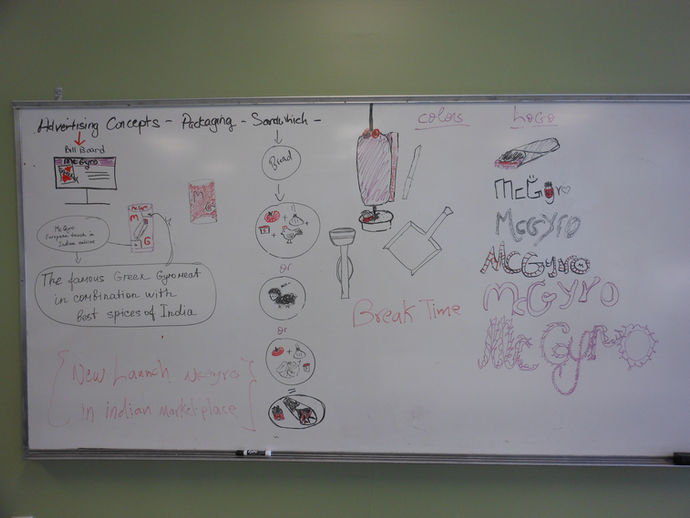 Advertising Concepts - Packaging - Sandwhich -
Bill Board
McGyro
McGyro
M
G
M
G
McGyro
European touch in
Indian cuisine
The famous Greek Gyro meat
in combination with
best spices of India
New Launch McGyro
in indian marketplace
Bread
+
+
or
or
+
=
Break Time
Colors
Logo
McGyro
McGyro
McGyro
McGyro
McGyro